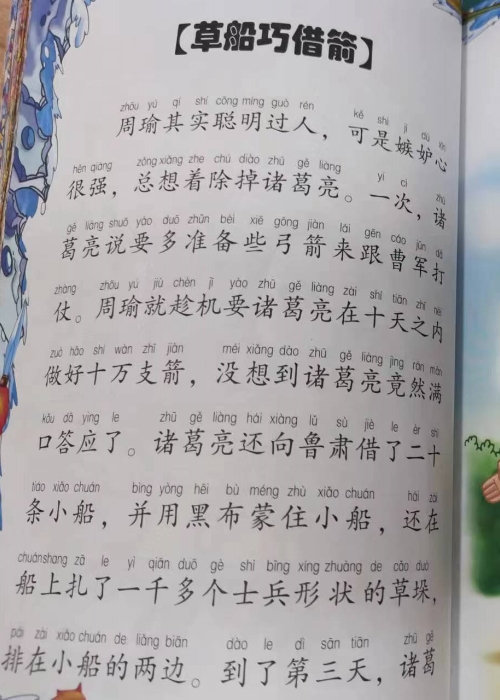 【草船巧借箭】
zhōu yú qí shí cōng míng guò rén kě shì jí dù xīn
周瑜其实聪明过人，可是嫉妒心
hěn qiáng zǒng xiǎng zhe chú diào zhū gě liàng yí cì zhū
很强，总想着除掉诸葛亮。一次，诸
gě liàng shuō yào duō zhǔn bèi xiē gōng jiàn lái gēn cáo jūn dǎ
葛亮说要多准备些弓箭来跟曹军打
zhàng zhōu yú jiù chèn jī yào zhū gě liàng zài shí tiān zhī nèi
仗。周瑜就趁机要诸葛亮在十天之内
zuò hǎo shí wàn zhī jiàn méi xiǎng dào zhū gě liàng jìng rán mǎn
做好十万支箭，没想到诸葛亮竟然满
kǒu dā ying le zhū gě liàng hái xiàng lǔ sù jiè le èr shí
口答应了。诸葛亮还向鲁肃借了二十
tiáo xiǎo chuán bìng yòng hēi bù méng zhù xiǎo chuán hái zài
条小船，并用黑布蒙住小船，还在
chuánshang zā le yì qiān duō gè shì bīng xíng zhuàng de cǎo duò
船上扎了一千多个士兵形状的草垛，
pái zài xiǎo chuán de liǎng biān dào le dì sān tiān zhū gě
排在小船的两边。到了第三天，诸葛